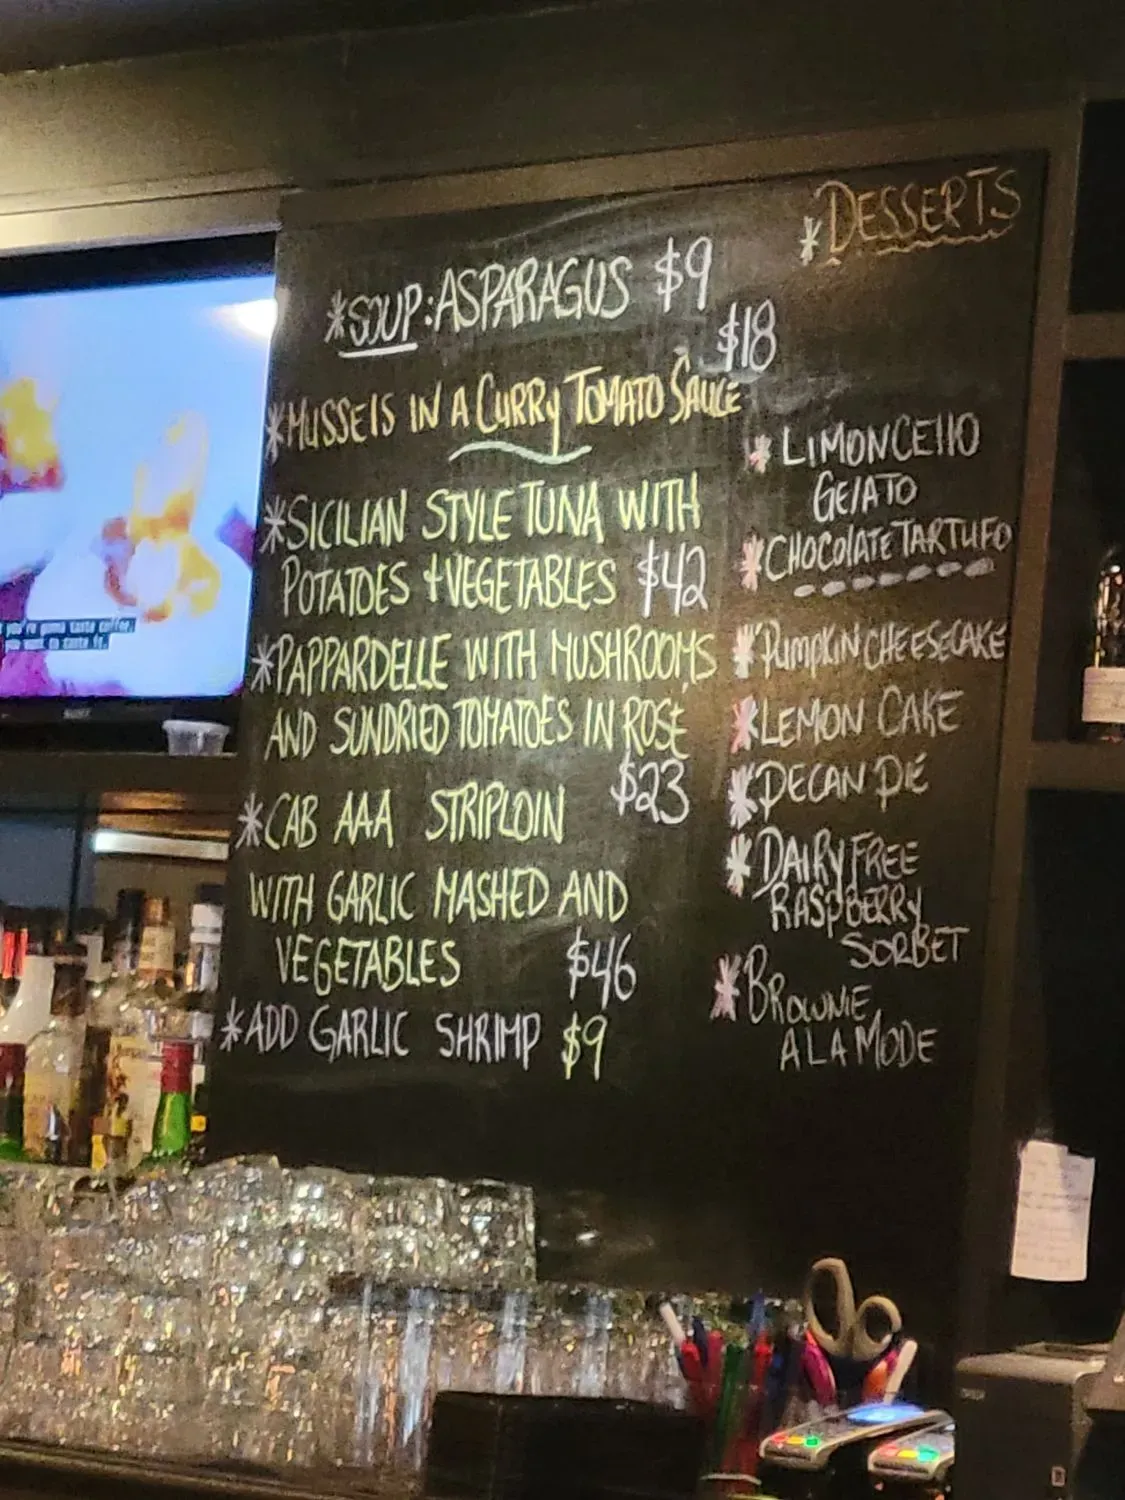 *SOUP: ASPARAGUS $9
$18
*MUSSELS IN A CURRY TOMATO SAUCE
*SICILIAN STYLE TUNA WITH
POTATOES + VEGETABLES $42
*PAPPARDELLE WITH MUSHROOMS
AND SUNDRIED TOMATOES IN ROSÉ
$23
*CAB AAA STRIPLOIN
WITH GARLIC MASHED AND
VEGETABLES $46
*ADD GARLIC SHRIMP $9
*DESSERTS
*LIMONCELLO
GELATO
*CHOCOLATE TARTUFO
*PUMPKIN CHEESECAKE
*LEMON CAKE
*PECAN PIE
*DAIRY FREE
RASPBERRY
SORBET
*BROWNIE
A LA MODE
you're gonna taste coffee.